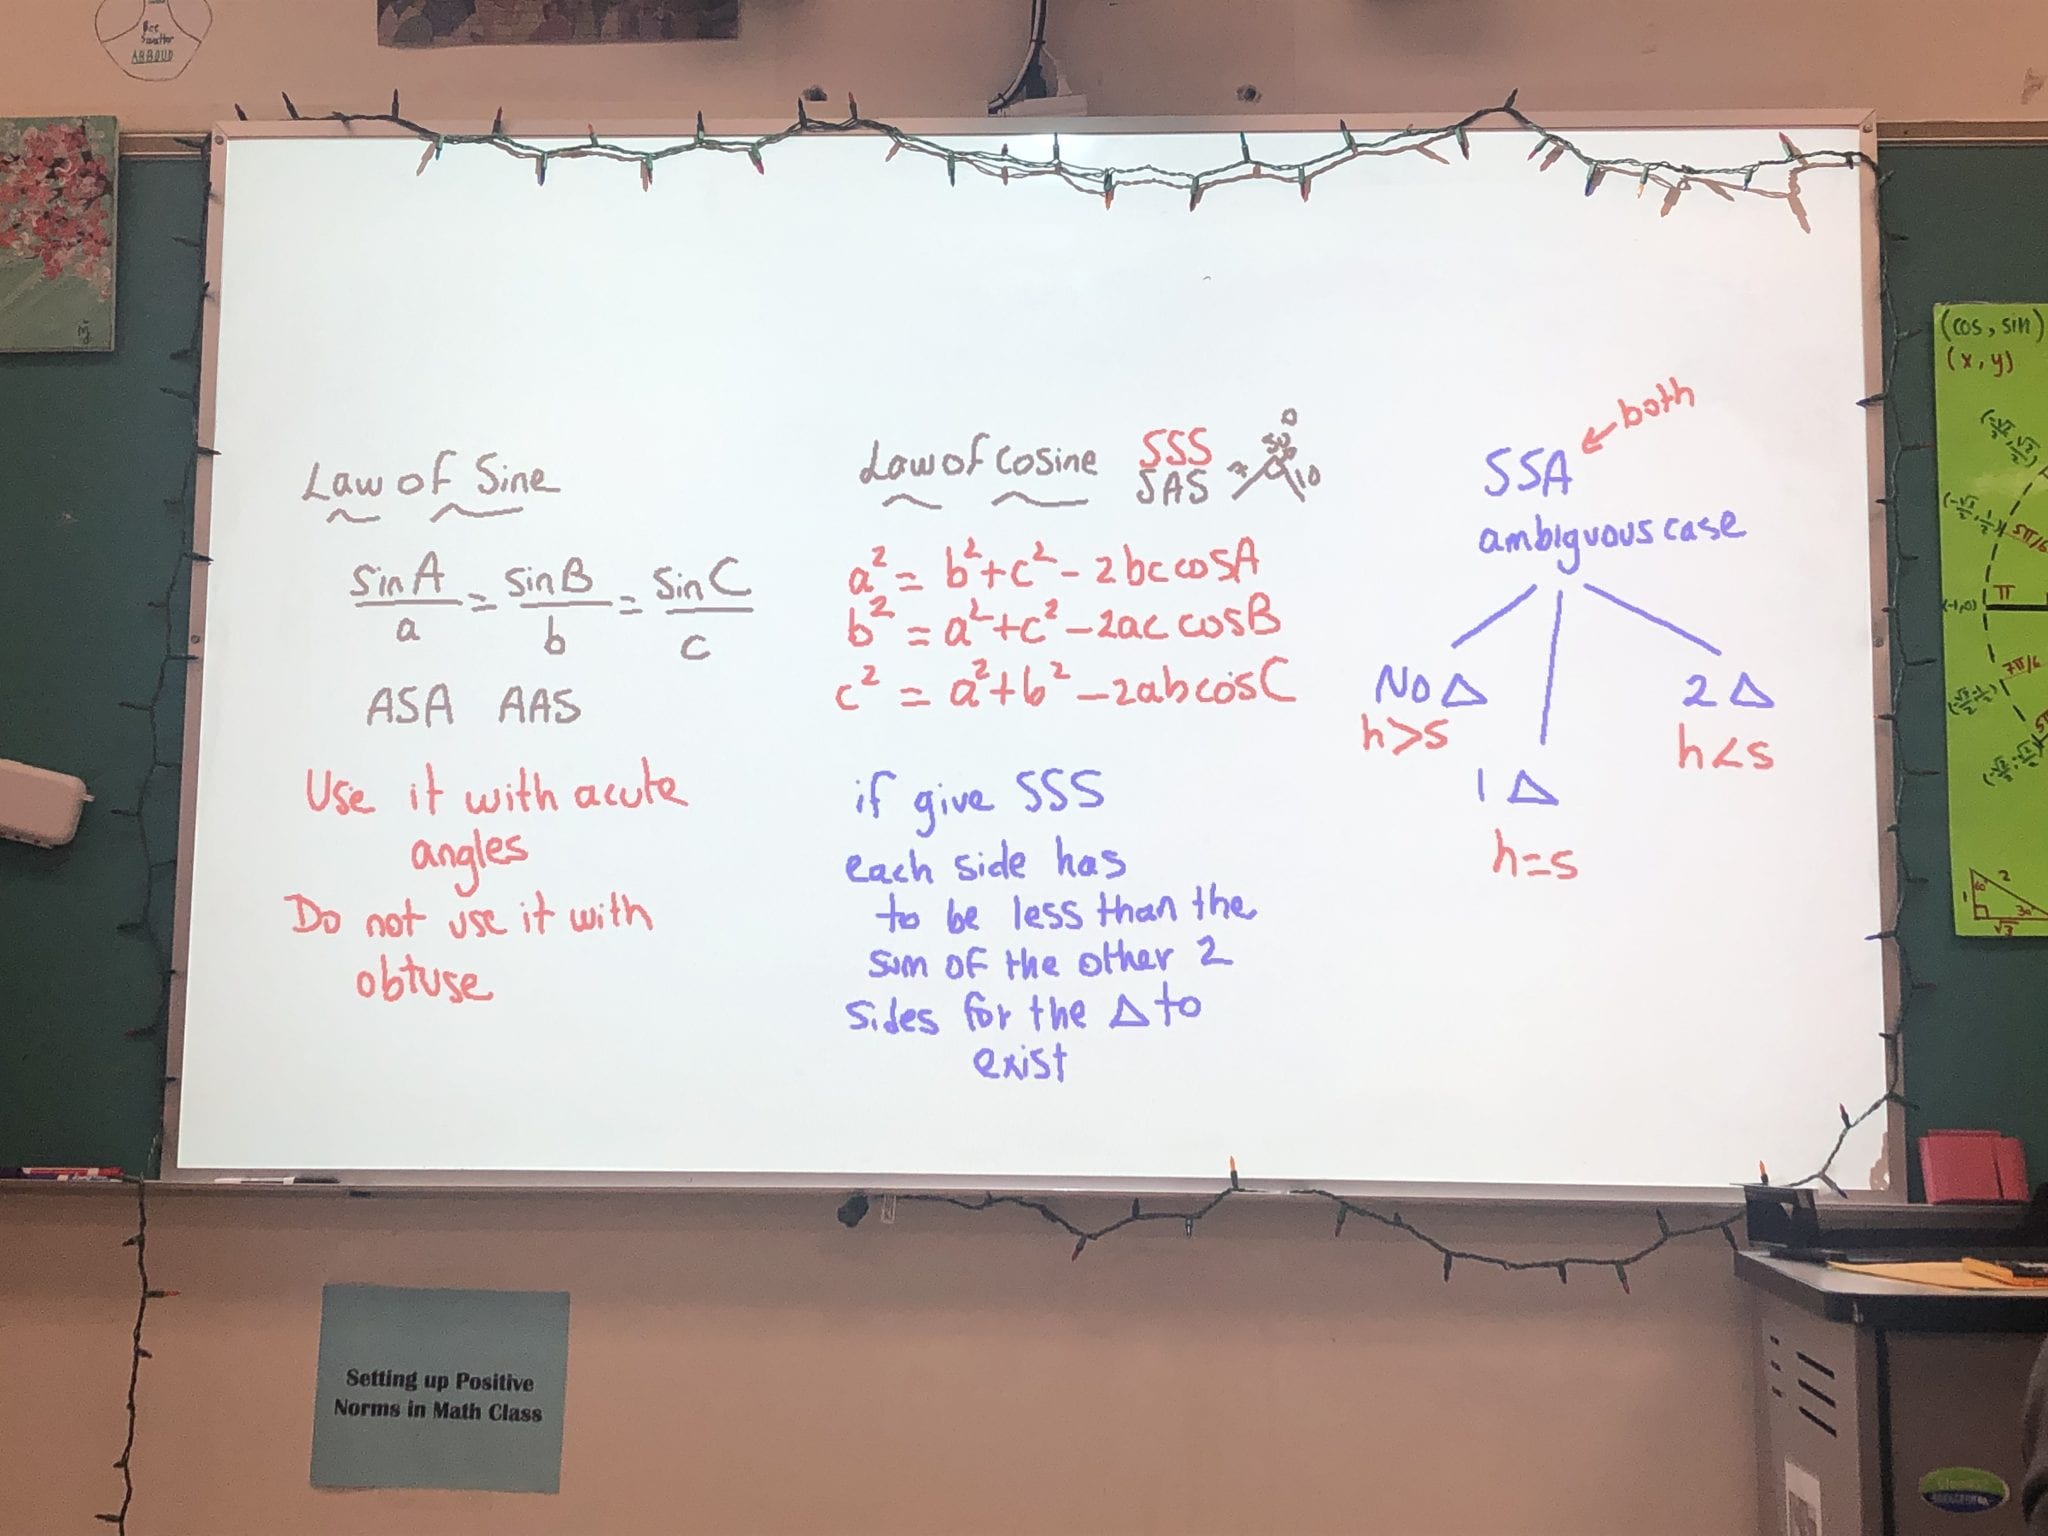 Bee
Swatter
ABBOUD
Law of Sine
sin A/a = sin B/b = sin C/c
ASA AAS
Use it with acute
angles
Do not use it with
obtuse
Law of cosine SSS
SAS
50°
10
a² = b²+c² - 2bc cosA
b² = a²+c² - 2ac cosB
c² = a²+b² - 2ab cosC
if give SSS
each side has
to be less than the
sum of the other 2
sides for the △ to
exist
both
SSA
ambiguous case
No △
h>s
1 △
h=s
2 △
h<s
(cos, sin)
(x, y)
5π/6
(-1,0)
π
7π/6
1
60°
2
30°
√3
Setting up Positive
Norms in Math Class